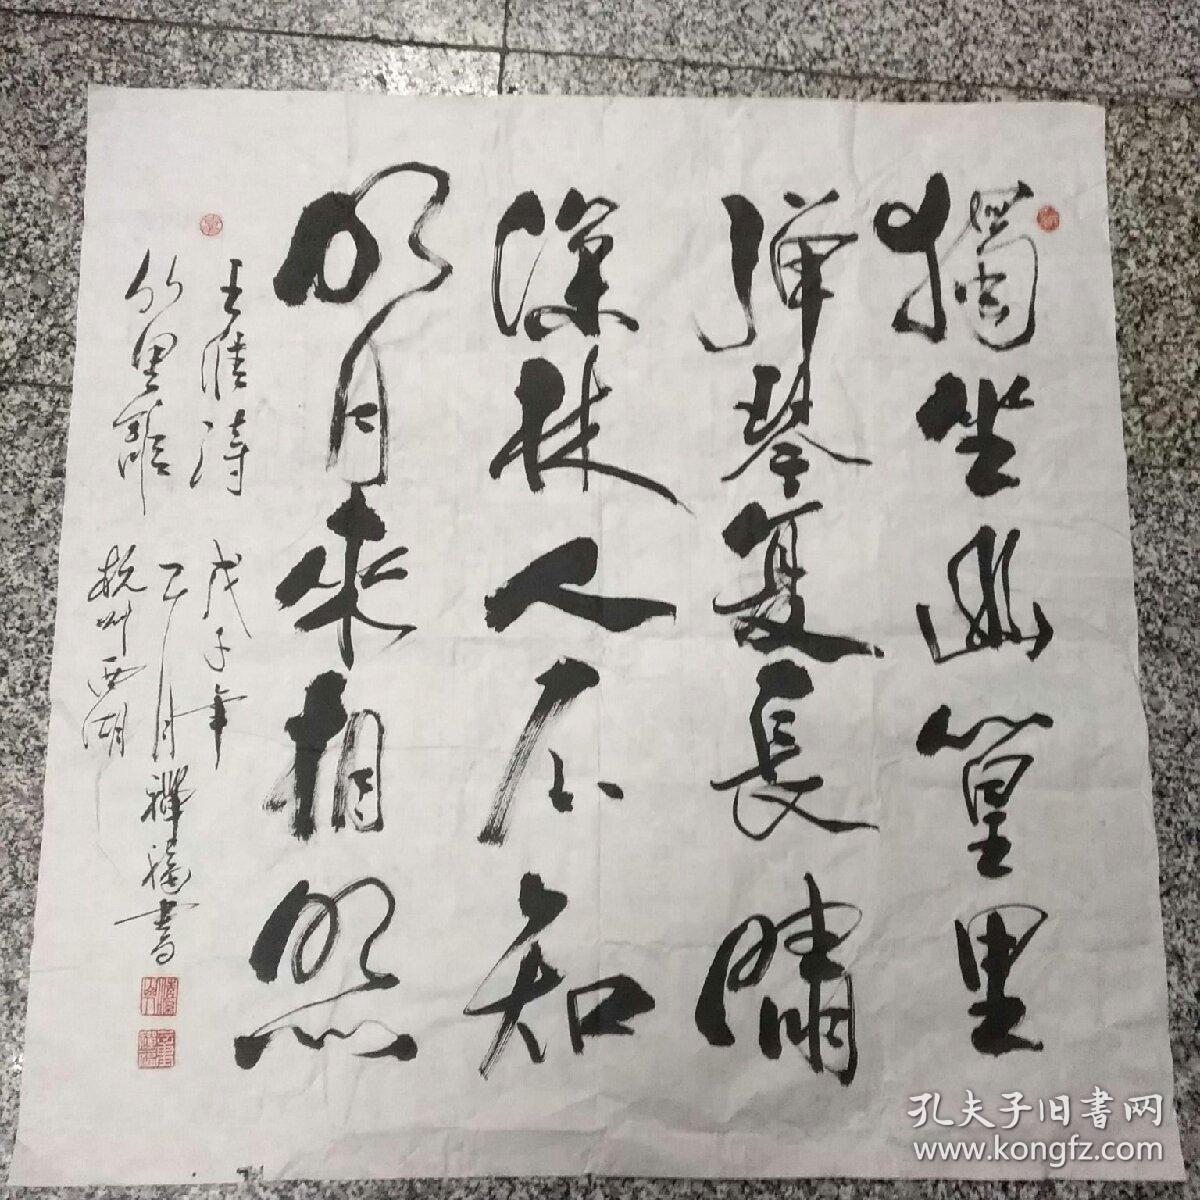 獨坐幽篁里
弹琴复長嘯
深林人不知
明月来相照
王维詩 戊子年
竹里館 二月禅福書
杭州西湖
孔夫子旧書网
www.kongfz.com